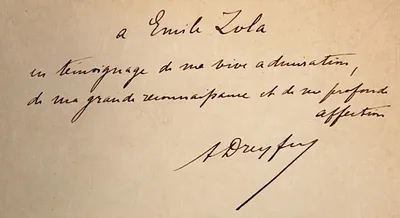 a Emile Zola
en témoignage de ma vive admiration,
de ma grande reconnaissance et de ma profonde
affection
A Dreyfus